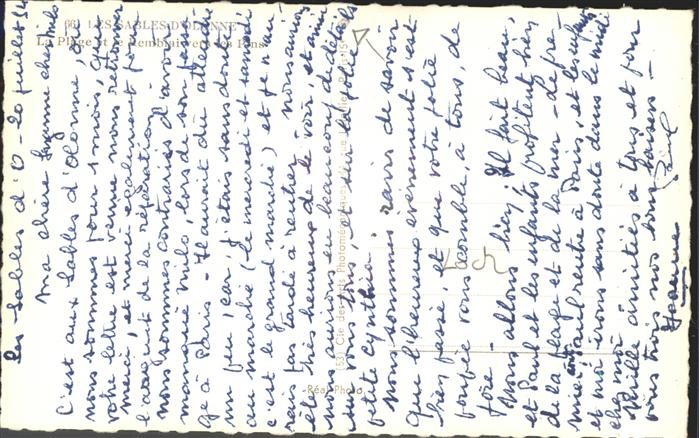 Les Sables d'O - 20 juillet 54
Ma chère Suzanne, cher Milo,
C'est aux Sables d'Olonne, où
nous sommes pour 1 mois, que
votre lettre est venue nous retrouver
merci, et merci également pour
l'argent de la réparation.
nous sommes contrariés d'avoir
manqué Milo, lors de son passa-
ge à Paris - Il aurait dû attendre
un peu, car j'étais sans doute
au marché (le mercredi et samedi
c'est le grand marché) et je n'au-
rais pas tardé à rentrer - nous aurions
été très heureux de le voir, et ainsi
nous aurions eu beaucoup de détails
sur vous tous, et sur la jolie
petite Cynthia.
Nous sommes ravis de savoir
que l'heureux évènement s'est
bien passé, et que votre jolie
poupée vous comble, à tous, de
joie -
Nous allons bien, Il fait beau,
et Paul et les enfants profitent bien
de la plage et de la mer - Le pre-
mier août Paul rentre à Paris, et les enfants
et moi irons sans doute dans le midi
chez moi
Mille amitiés à tous et pour
vous trois nos bons baisers -
Yvonne
Loch
(66) LES SABLES D'OLONNE
La Plage et le Remblai vers les Pins
(53) Cie des Arts Photomécaniques
Réal Photo